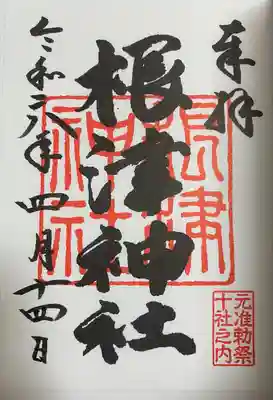 奉拝
元准勅祭
十社之内
根津神社
根津
神社
令和六年四月十四日